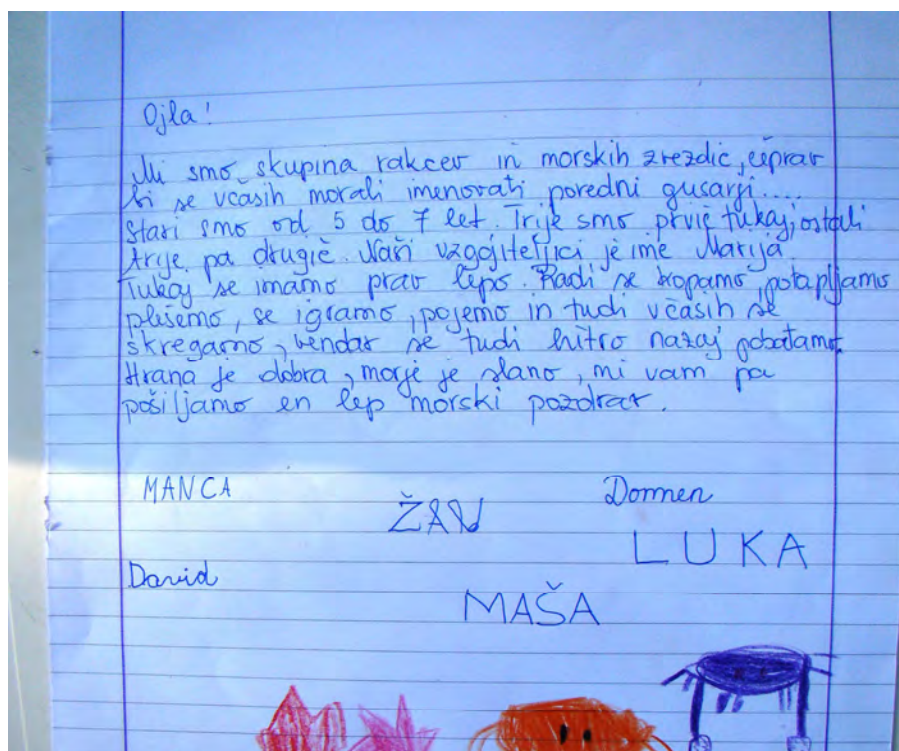 Ojla!
Mi smo skupina rakcev in morskih zvezdic, čeprav
bi se včasih morali imenovati poredni gusarji....
Stari smo od 5 do 7 let. Trije smo prvič tukaj, ostali
trije pa drugič. Naši vzgojiteljici je ime Marija.
Tukaj se imamo prav lepo. Radi se kopamo, potapljamo
plešemo, se igramo, pojemo in tudi včasih se
skregamo, vendar se tudi hitro nazaj pobotamo.
Hrana je dobra, morje je slano, mi vam pa
pošiljamo en lep morski pozdrav.
MANCA
ŽAN
Domen
LUKA
David
MAŠA